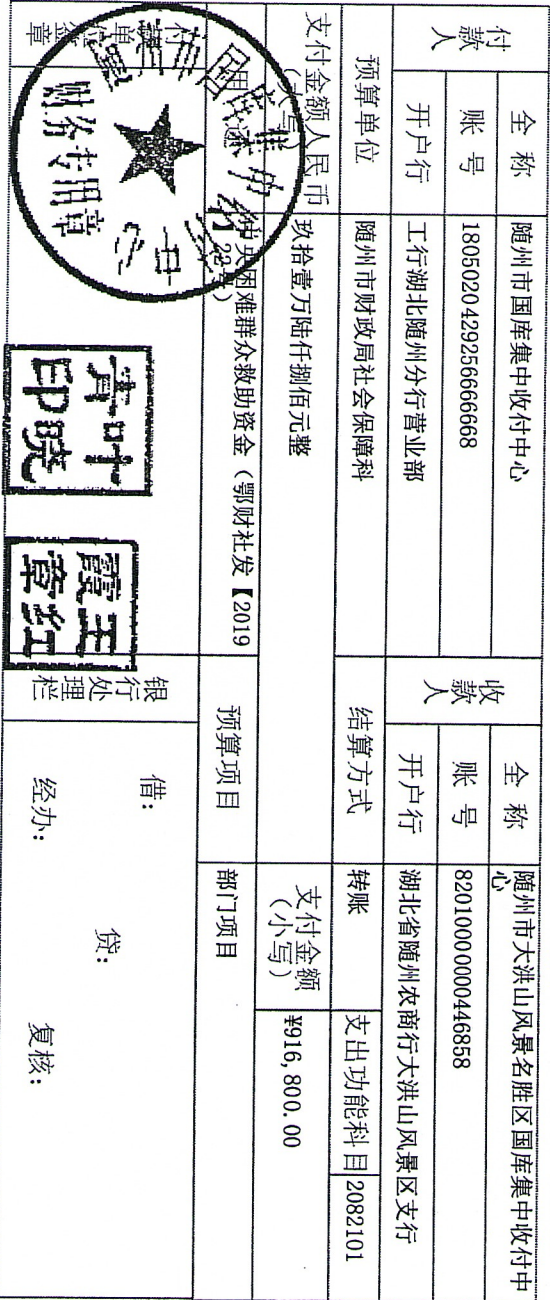 付款人
全 称 随州市国库集中收付中心
账 号 1805020429256666668
开户行 工行湖北随州分行营业部
收款人
全 称 随州市大洪山风景名胜区国库集中收付中心
账 号 82010000000446858
开户行 湖北省随州农商行大洪山风景区支行
预算单位 随州市财政局社会保障科
结算方式 转账 支出功能科目 2082101
支付金额人民币(大写) 玖拾壹万陆仟捌佰元整
支付金额(小写) ¥916,800.00
用途 中央困难群众救助资金(鄂财社发【2019
预算项目 部门项目
付款单位签章
财务专用章
叶晓青印
王红霞章
银行处理栏
借: 贷:
经办: 复核: